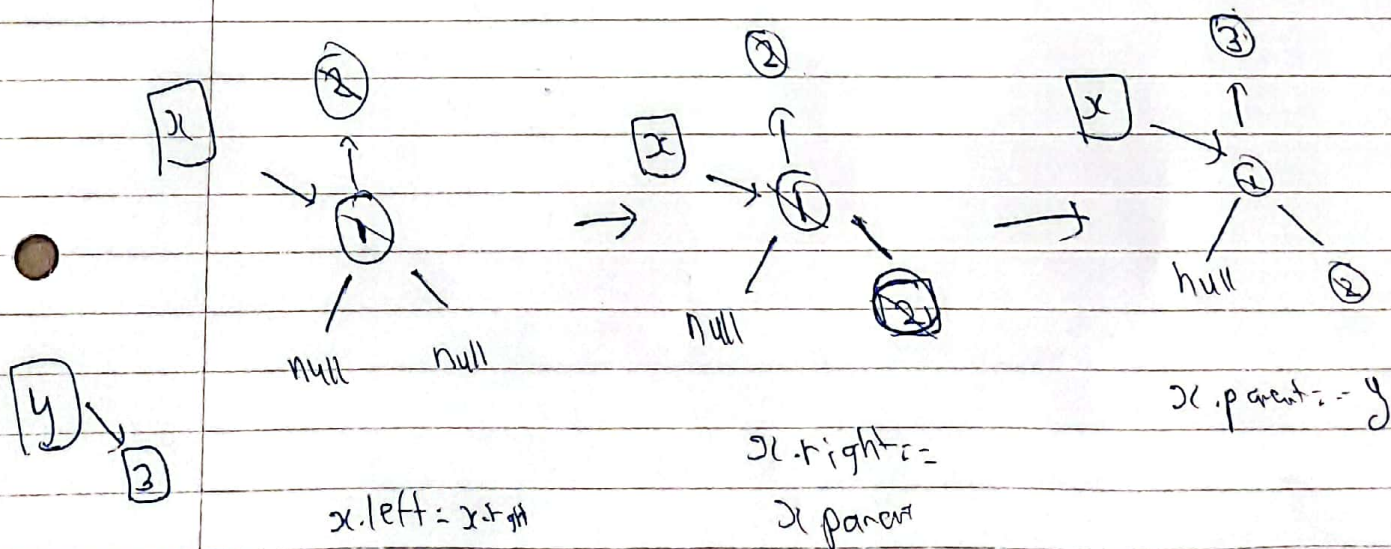 2
x
1
null null
y
3
x.left = x.right
2
x
1
null
2
x.right :=
x parent
3
x
1
null
2
x.parent := y